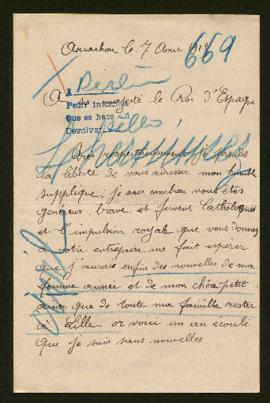 Arcachon le 7 Aout 191
669
Berlin
A sa majesté le Roi d'Espagne
Pedir informes
Que se hace
Devolver
Très respectueusement je prends
la liberté de vous adresser mon humble
supplique ; je sais combien vous êtes
genereux, brave et fervent Catholiques
et l'impulsion royale que vous donnez
à votre entreprise me fait esperer
que j'aurais enfin des nouvelles de ma
femme aimée et de mon chère petit
ainsi que de toute ma famille restée
à Lille or voici un an écoulé
que je suis sans nouvelles